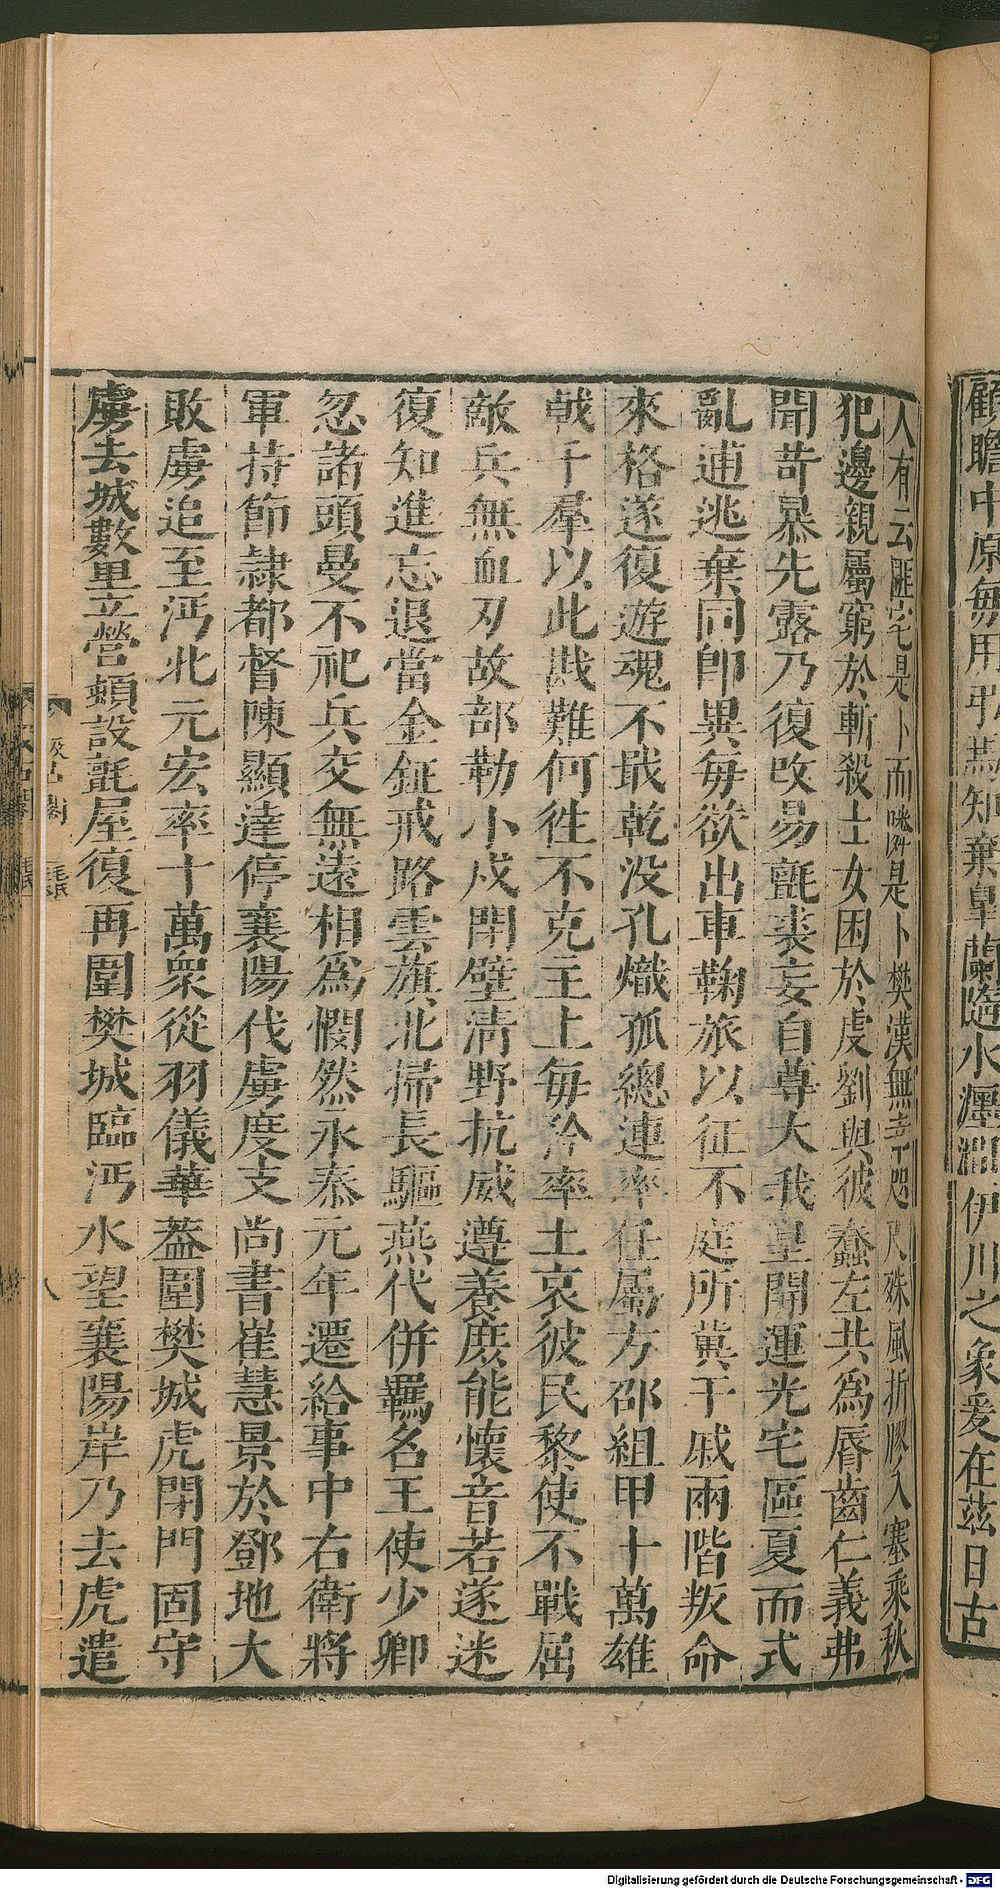 顧瞻中原每用弔焉知棄皋蘭隨水瀍澗伊川之象爰在茲日古
人有云匪宅是卜而鄰是卜樊漢無幸咫尺殊風折膠入塞乘秋
犯邊親屬窮於斬殺士女困於虔劉與彼蠢左共爲唇齒仁義弗
聞苛暴先露乃復改易氈裘妄自尊大我皇開運光宅區夏而式
亂逋逃棄同卽異每欲出車鞠旅以征不庭所冀干戚兩階叛命
來格遂復遊魂不戢乾没孔熾孤總連率任屬方邵組甲十萬雄
戟千羣以此戡難何徃不克主上每矜率土哀彼民黎使不戰屈
敵兵無血刃故部勒小戍閉壁清野抗威遵養庶能懷音若遂迷
復知進忘退當金鉦戒路雲旗北掃長驅燕代併羈名王使少卿
忽諸頭曼不祀兵交無遠相爲憫然永泰元年遷給事中右衛將
軍持節隷都督陳顯達停襄陽代虜度支尚書崔慧景於鄧地大
敗虜追至沔北元宏率十萬衆從羽儀華葢圍樊城虎閉門固守
虜去城數里立營頓設氈屋復再圍樊城臨沔水望襄陽岸乃去虎遣
八
Digitalisierung gefördert durch die Deutsche Forschungsgemeinschaft - DFG